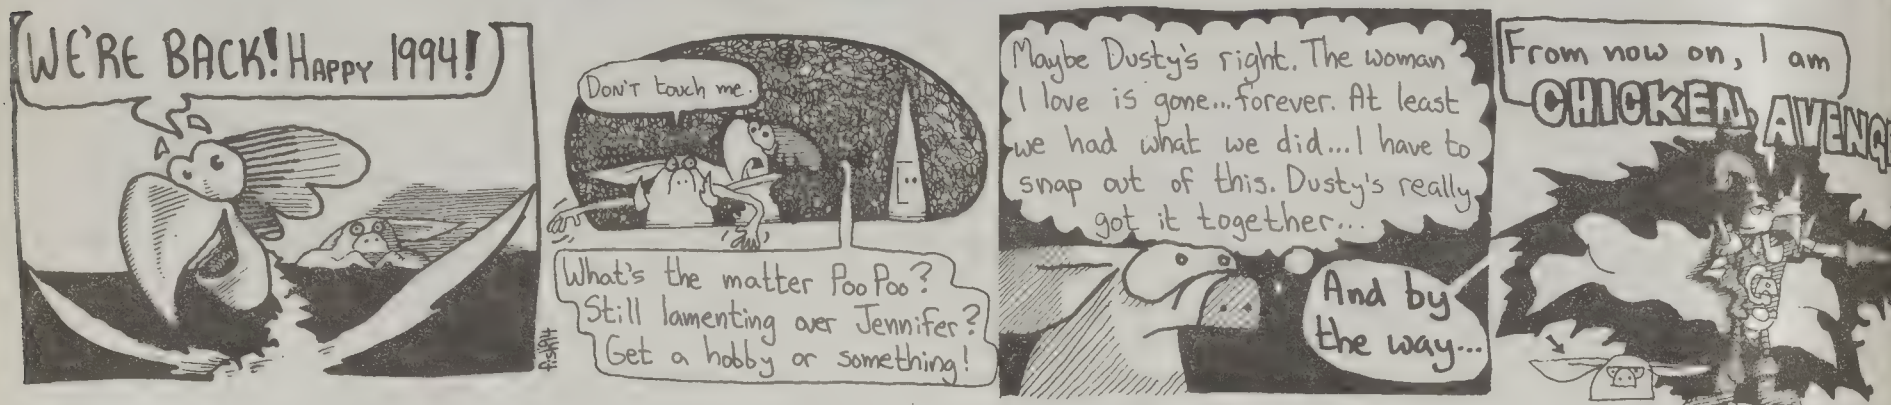 WE'RE BACK! HAPPY 1994!
DON'T touch me.
What's the matter Poo Poo?
Still lamenting over Jennifer?
Get a hobby or something!
Maybe Dusty's right. The woman
I love is gone...forever. At least
we had what we did...I have to
snap out of this. Dusty's really
got it together...
And by
the way...
From now on, I am
CHICKEN AVENG